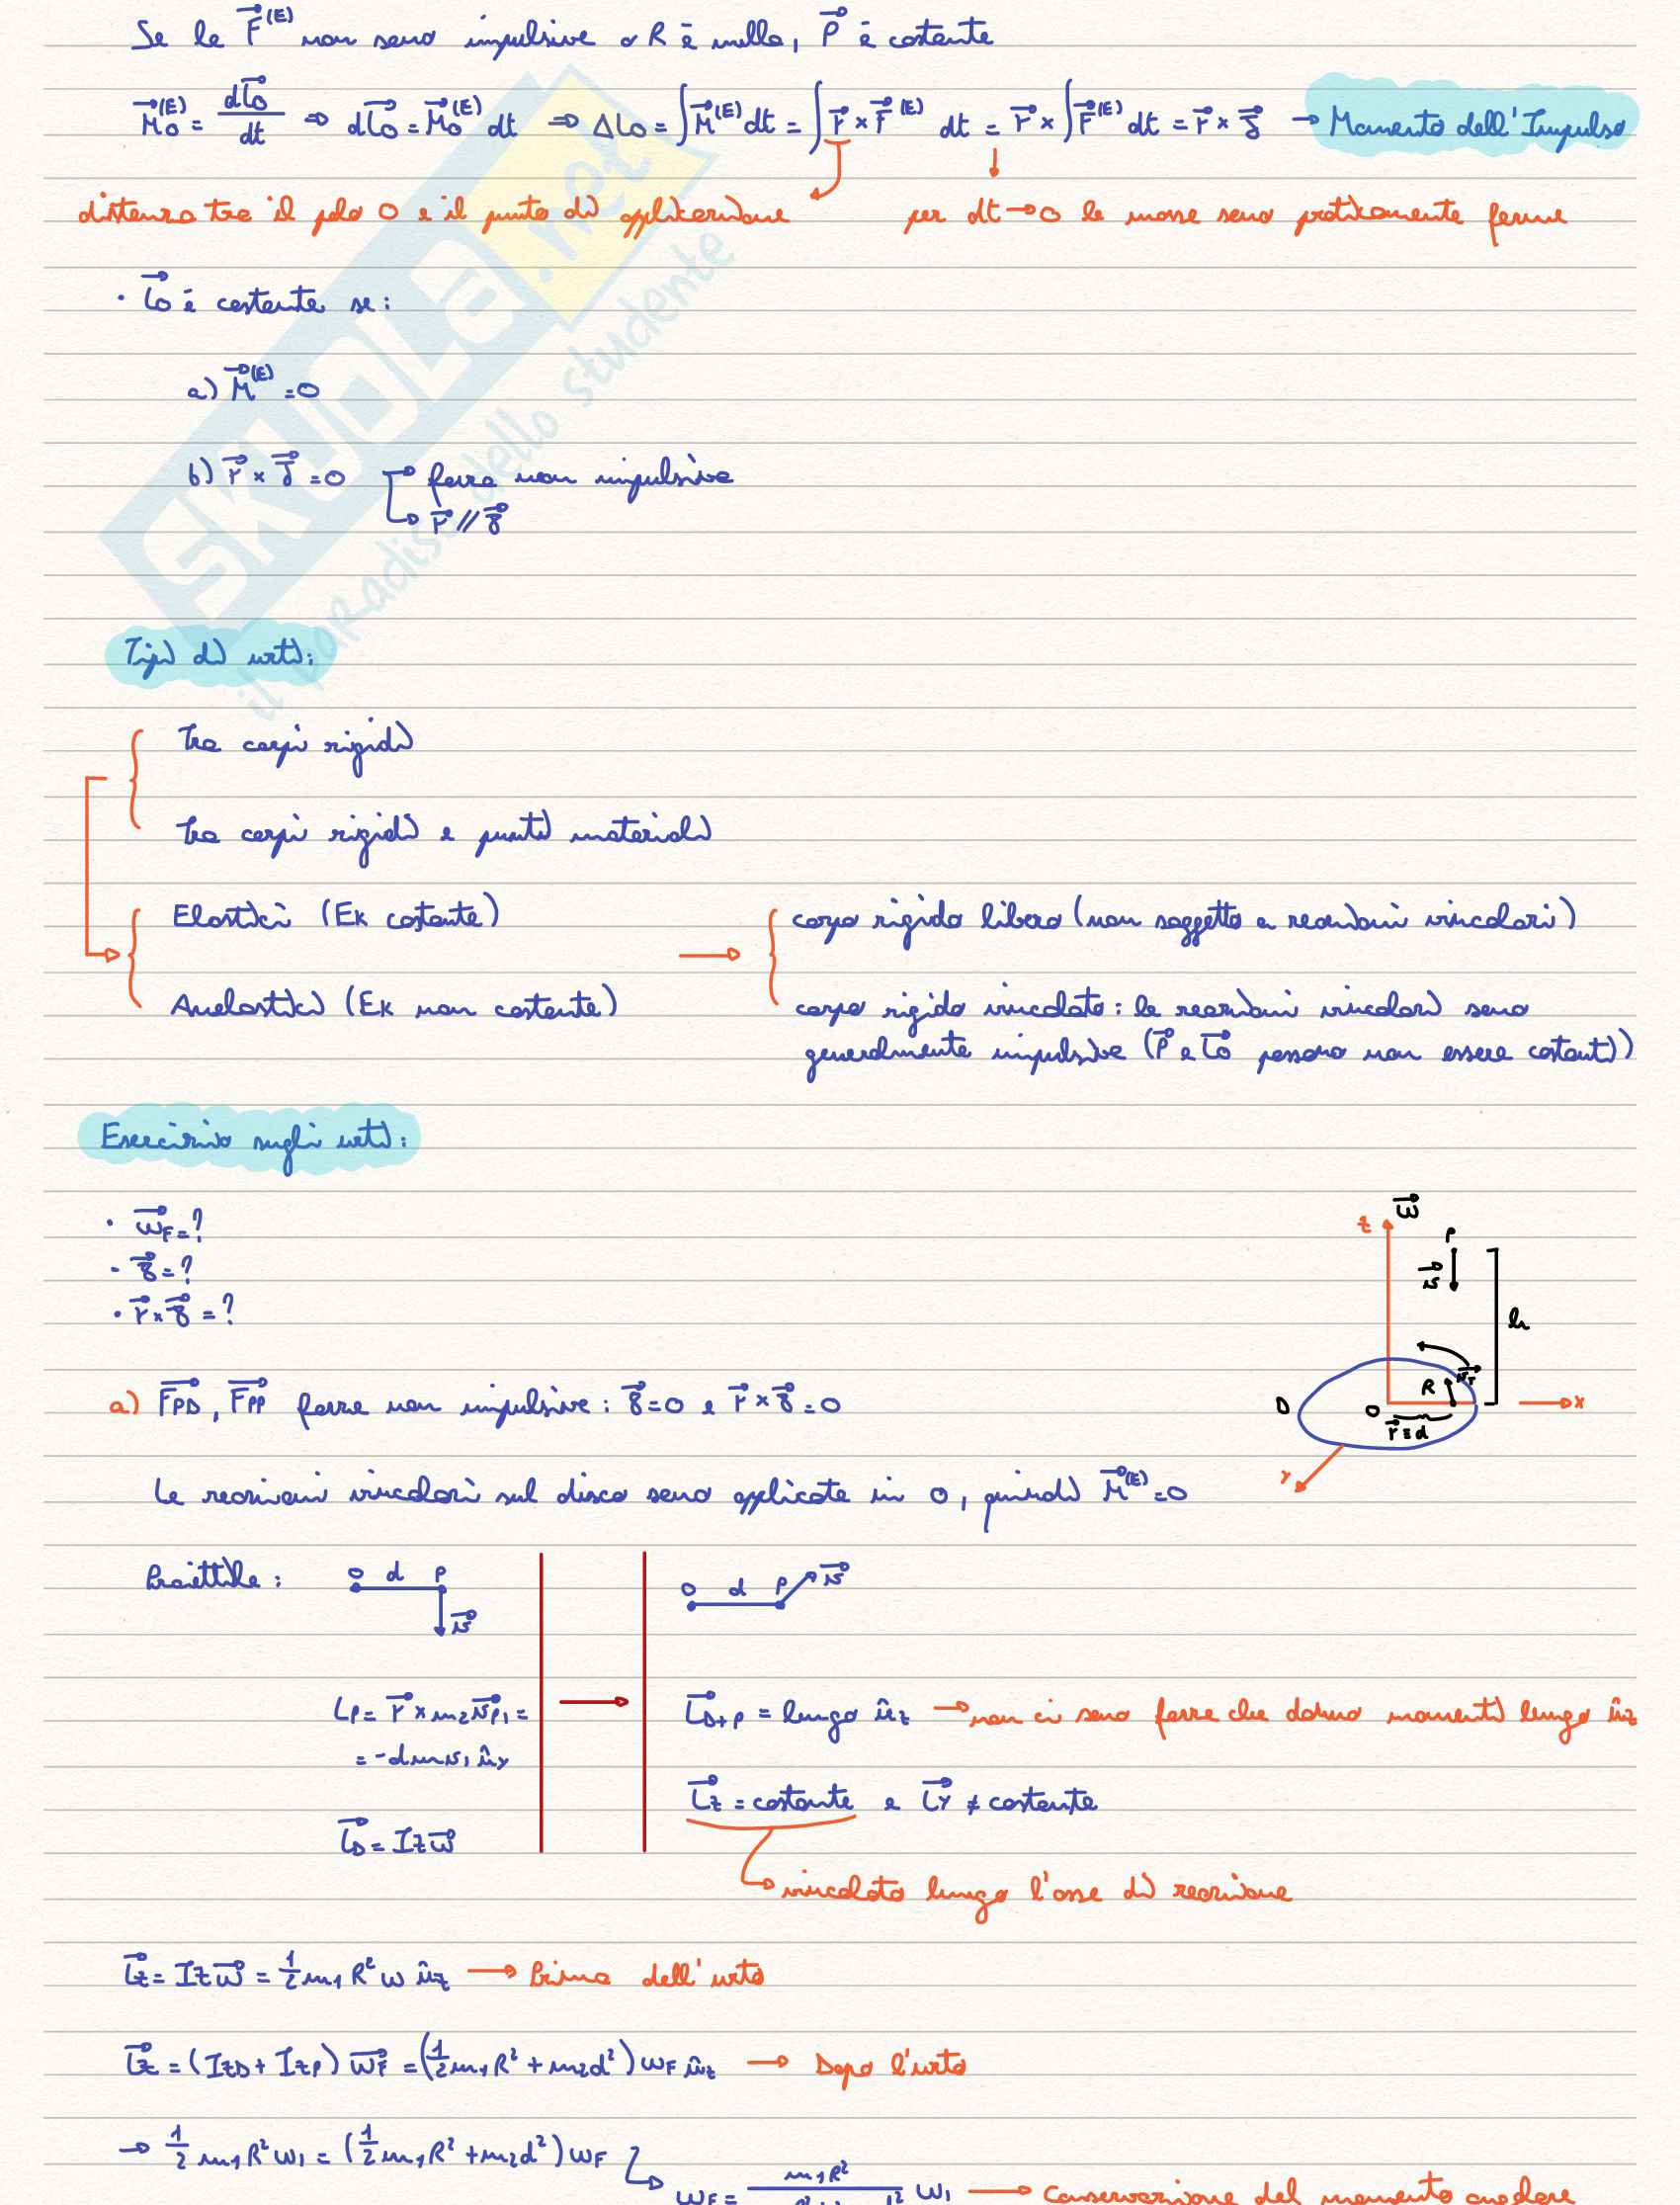 Se le F⃗⁽ᴱ⁾ non sono impulsive o R è nulla, P⃗ è costante
M⃗o⁽ᴱ⁾ = dL⃗o/dt ⇒ dL⃗o = M⃗o⁽ᴱ⁾ dt ⇒ ΔLo = ∫M⃗⁽ᴱ⁾dt = ∫r⃗ × F⃗⁽ᴱ⁾ dt = r⃗ × ∫F⃗⁽ᴱ⁾ dt = r⃗ × J⃗ → Momento dell'Impulso
distanza tra il polo O e il punto di applicazione
per dt→0 le masse sono praticamente ferme
• L⃗o è costante se:
a) M⃗⁽ᴱ⁾ = 0
b) r⃗ × J⃗ = 0 → forze non impulsive
↳ r⃗ // J⃗
Tipi di urti:
Tra corpi rigidi
Tra corpi rigidi e punti materiali
Elastici (Ek costante) → corpo rigido libero (non soggetto a reazioni vincolari)
Anelastici (Ek non costante)
corpo rigido vincolato: le reazioni vincolari sono
generalmente impulsive (P⃗ e L⃗o possono non essere costanti)
Esercizio sugli urti:
• ω⃗F = ?
• J⃗ = ?
• r⃗ × J⃗ = ?
z ω⃗
P
v⃗
h
R v⃗T
D O x
r⃗ = d
y
a) F⃗PD, F⃗PP forze non impulsive: J⃗ = 0 e r⃗ × J⃗ = 0
Le reazioni vincolari sul disco sono applicate in O, quindi M⃗⁽ᴱ⁾ = 0
Proiettile: O d P
v⃗
O d P v⃗
LP = r⃗ × m2 v⃗P1 =
= -dmv1 ûy
L⃗D = Iz ω⃗
L⃗D+P = lungo ûz → non ci sono forze che danno momenti lungo ûz
L⃗z = costante e L⃗y ≠ costante
↳ vincolato lungo l'asse di reazione
L⃗z = Iz ω⃗ = 1/2 m1 R² ω ûz → Prima dell'urto
L⃗z = (IzD + IzP) ω⃗F = (1/2 m1 R² + m2 d²) ωF ûz → Dopo l'urto
→ 1/2 m1 R² ω1 = (1/2 m1 R² + m2 d²) ωF
↳ ωF = m1 R² ω1 → Conservazione del momento angolare
SKUOLA.net
il paradiso dello studente